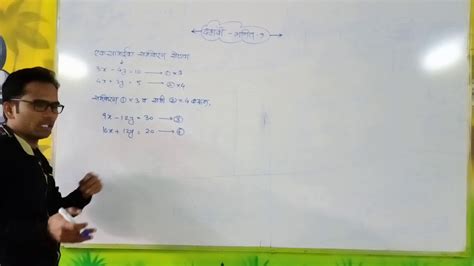 दहावी - गणित - १
एकसामाईक समीकरण सोडवा
3x - 4y = 10 → ① × 3
4x + 3y = 5 → ② × 4
समीकरण ① × 3 व ② × 4 करून,
9x - 12y = 30 → ③
16x + 12y = 20 → ④